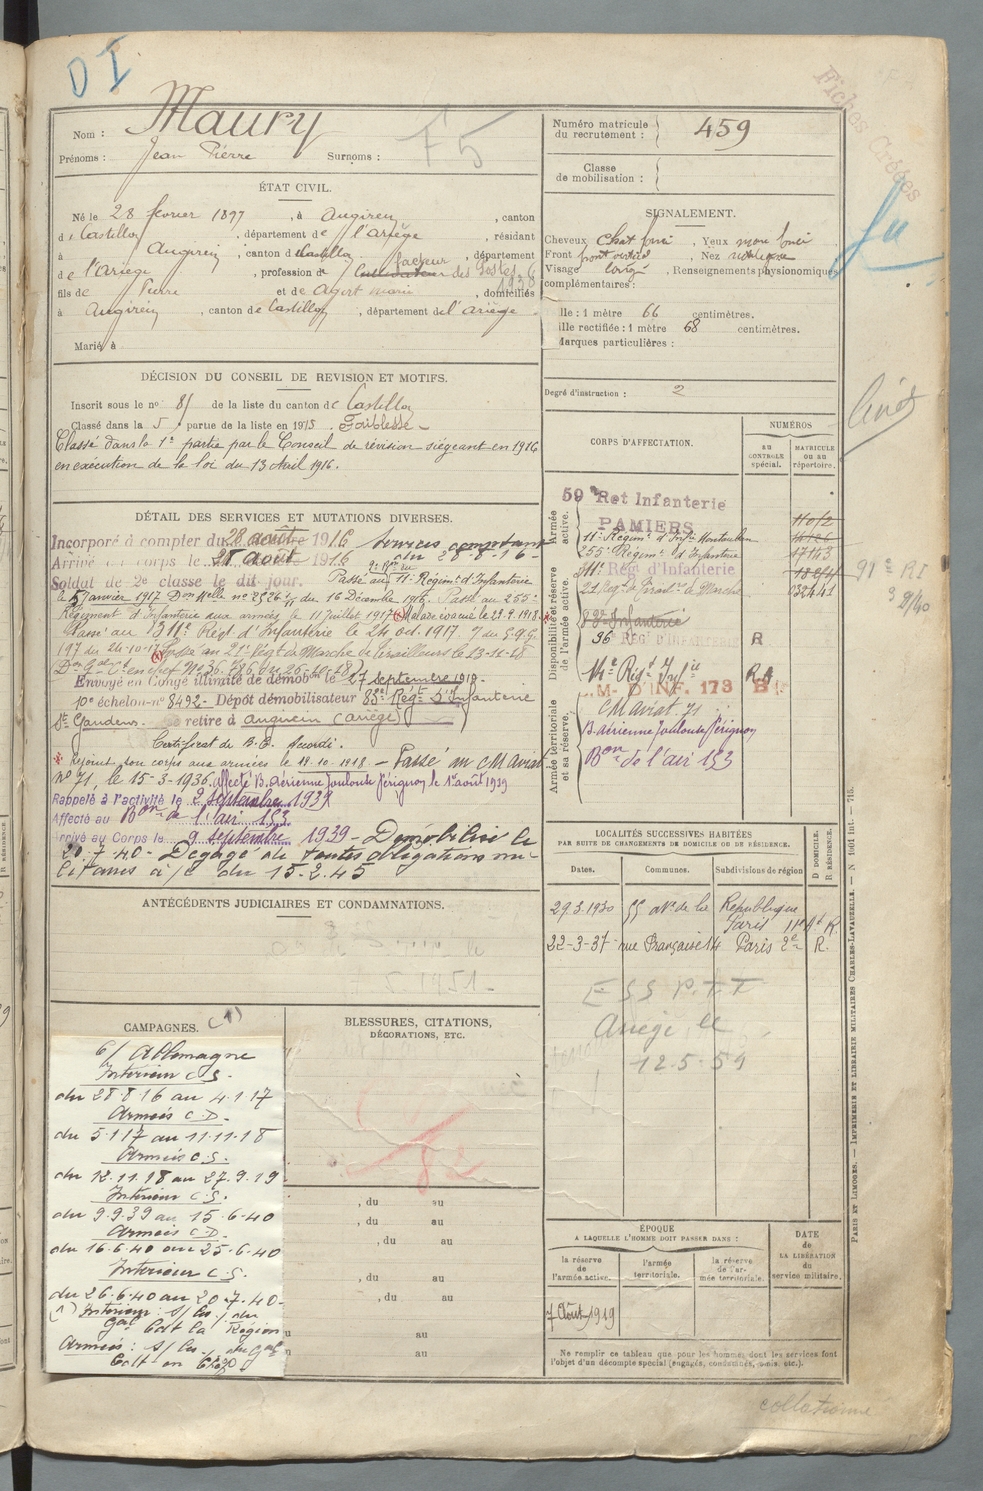 DI
Fiches Créées
Nom : Maury
Prénoms : Jean Pierre Surnoms :
F5
Numéro matricule du recrutement : 459
Classe de mobilisation :
ÉTAT CIVIL.
Né le 28 février 1897, à Augirein, canton
de Castillon, département de l'Ariège, résidant
à Augirein, canton de Castillon, département
de l'Ariège, profession de Cultivateur facteur des Postes 6 1938
fils de Pierre et de Agert Marie, domiciliés
à Augirein, canton de Castillon, département de l'Ariège
Marié à
SIGNALEMENT.
Cheveux chat foncé, Yeux mar foncé
Front, Nez
Visage long, Renseignements physionomiques
complémentaires :
lle : 1 mètre 66 centimètres.
ille rectifiée : 1 mètre 68 centimètres.
Marques particulières :
Degré d'instruction : 2
DÉCISION DU CONSEIL DE REVISION ET MOTIFS.
Inscrit sous le no 81 de la liste du canton de Castillon
Classé dans la 5 partie de la liste en 1915. Faiblesse -
Classé dans la 1e partie par le Conseil de révision siégeant en 1916
en exécution de la loi du 13 Avril 1916.
DÉTAIL DES SERVICES ET MUTATIONS DIVERSES.
Incorporé à compter du 28 août 1916 services comptant
Arrivé au corps le 28 août 1916 du 28-8-16 -
Soldat de 2e classe le dit jour. Passé au 11e Régimt d'Infanterie
le 5 janvier 1917 Don Melle no 2526/11 du 16 Décembre 1916. Passé au 255e
Régiment d'Infanterie aux armées le 11 juillet 1917 Malade évacué le 23.9.1918.
Passé au 311e Régt d'Infanterie le 24 oct. 1917. du G.Q.G.
197 du 24-10-17 Passé au 21e Régt de Marche de Tirailleurs le 13-11-18
Don Gal Ct en chef No 36.786 du 26-10-18)
Envoyé en Congé illimité de démobon le 27 septembre 1919 -
10e échelon - no 8492 - Dépôt démobilisateur 83e Régt D'Infanterie
St Gaudens. Se retire à Augirein (Ariège)
Certificat de B.C. Accordé.
Rejoint son corps aux armées le 18-10-1918. - Passé au CM Aviat
no 71, le 15-3-1936. affecté B. Aérienne Toulouse Pérignon le 1er août 1939
Rappelé à l'activité le 2 septembre 1939
Affecté au Bon de l'air 153
Arrivé au Corps le 9 septembre 1939 - Démobilisé le
20.7.40 - Dégagé de toutes obligations mi-
litaires à/c du 15.2.45
CORPS D'AFFECTATION.
NUMÉROS
au CONTROLE spécial.
MATRICULE ou au répertoire.
Armée active.
Disponibilité et réserve de l'armée active.
Armée territoriale et sa réserve.
59e Ret Infanterie
PAMIERS
11e Régimt d'Infie Montauban
255e Régimt d'Infanterie 17143
311e Régt d'Infanterie
21e Régt de Tiraillrs de Marche 32441
83e Infanterie
96 REGt D'INFANTERIE R
14e Régt d'Infie
C.M. D'INF. 173
CM Aviat 71
B. aérienne Toulouse Pérignon
Bon de l'air 153
91e RI
livret
ANTÉCÉDENTS JUDICIAIRES ET CONDAMNATIONS.
LOCALITÉS SUCCESSIVES HABITÉES
PAR SUITE DE CHANGEMENTS DE DOMICILE OU DE RÉSIDENCE.
Dates. Communes. Subdivisions de région
D. DOMICILE. R. RÉSIDENCE.
29.3.1930 55 Av. de la République Paris 11e At R
22-3-37 rue Française 14 Paris 2e R.
ESS PTT
Ariège le
12.5.59
CAMPAGNES. (1)
c/ Allemagne
Intérieur C.S.
du 28 8 16 au 4.1.17
Armées C.D.
du 5.1.17 au 11.11.18
Armées C.S.
du 12.11.18 au 27.9.19
Intérieur C.S.
du 9.9.39 au 15.6.40
Armées C.D.
du 16.6.40 au 25.6.40
Intérieur C.S.
du 26.6.40 au 20.7.40 -
(1) Intérieur : s/ du
Gal Cdt la Région
Armées : s/ du Gal
Cdt en Chef
BLESSURES, CITATIONS,
DÉCORATIONS, ETC.
, du au
, du au
, du au
, du au
, du au
au
au
ÉPOQUE
A LAQUELLE L'HOMME DOIT PASSER DANS :
la réserve de l'armée active.
l'armée territoriale.
la réserve de l'armée territoriale.
DATE de LA LIBÉRATION du service militaire.
7 Août 1919
Ne remplir ce tableau que pour les hommes dont les services font
l'objet d'un décompte spécial (engagés, condamnés, omis, etc.).
PARIS ET LIMOGES. — IMPRIMERIE ET LIBRAIRIE MILITAIRES CHARLES-LAVAUZELLE. — N 1901 int. — 715.
collationné